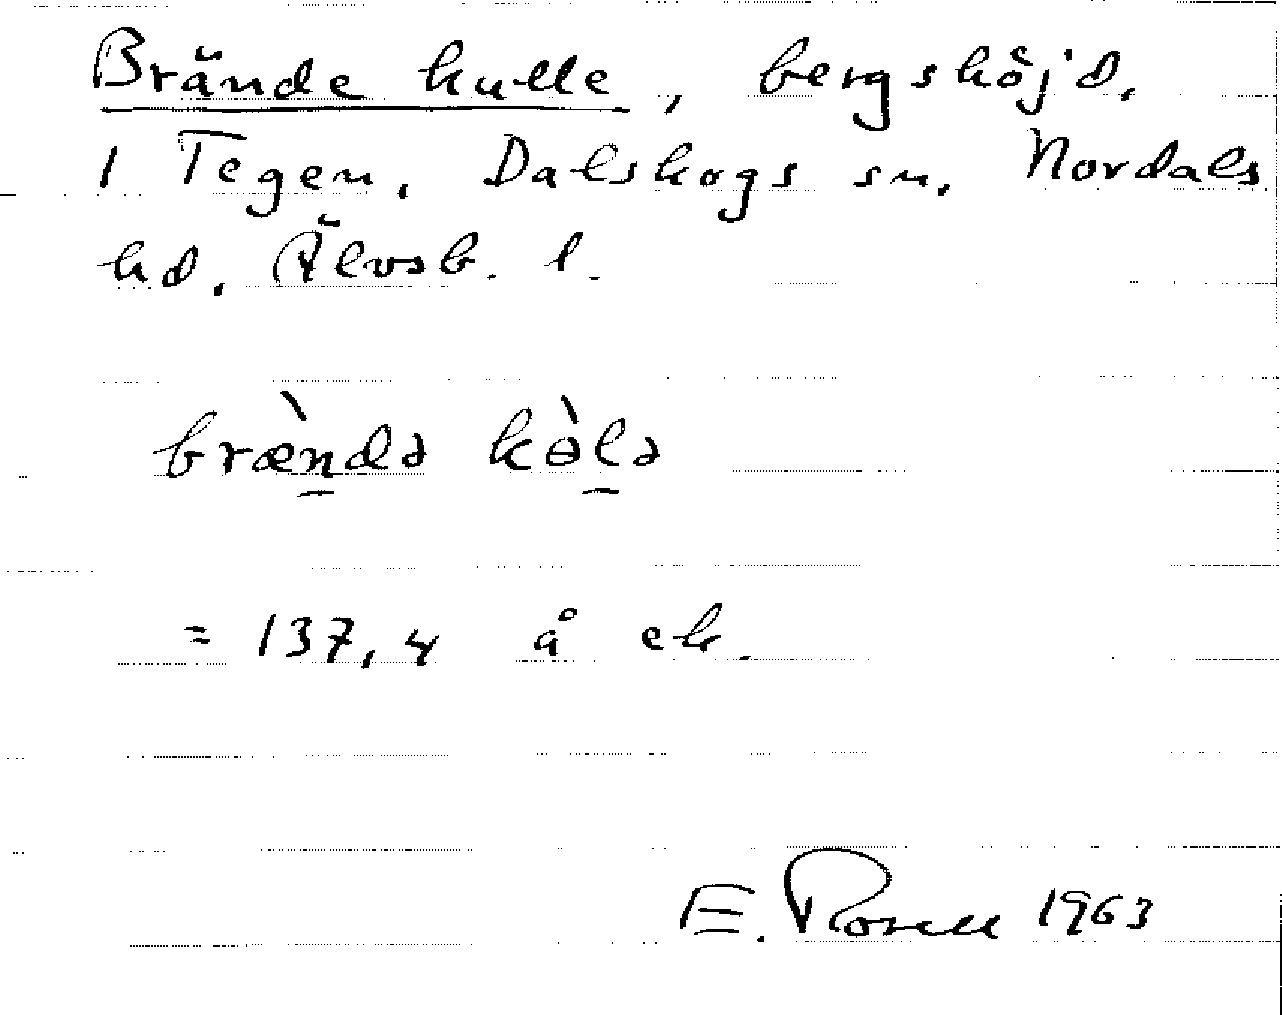 Brände kulle, bergshöjd,
i Tegen, Dalskogs sn, Nordals
hd, Älvsb. l.
bræ̀ndə kɵ̀lə
= 137,4 å ek.
E. Rosell 1963